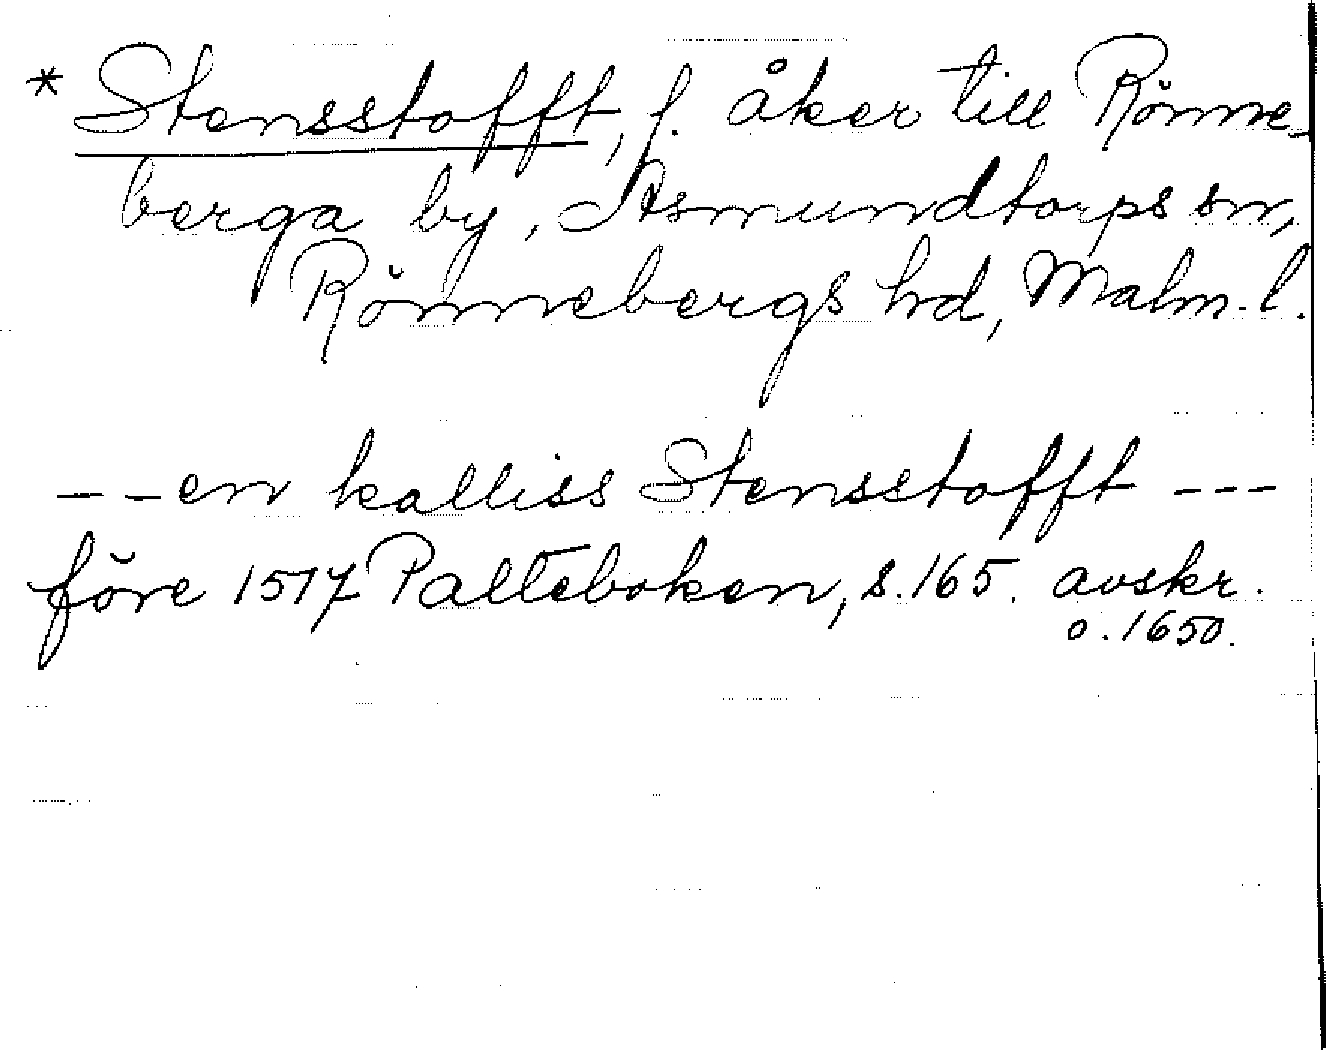 * Stensstofft, f. åker till Rönne-
berga by, Asmundtorps sn,
Rönnebergs hd, Malm.l.
- - en kalliss Stensstofft ---
före 1517 Palteboken, s.165. avskr.
o. 1650.